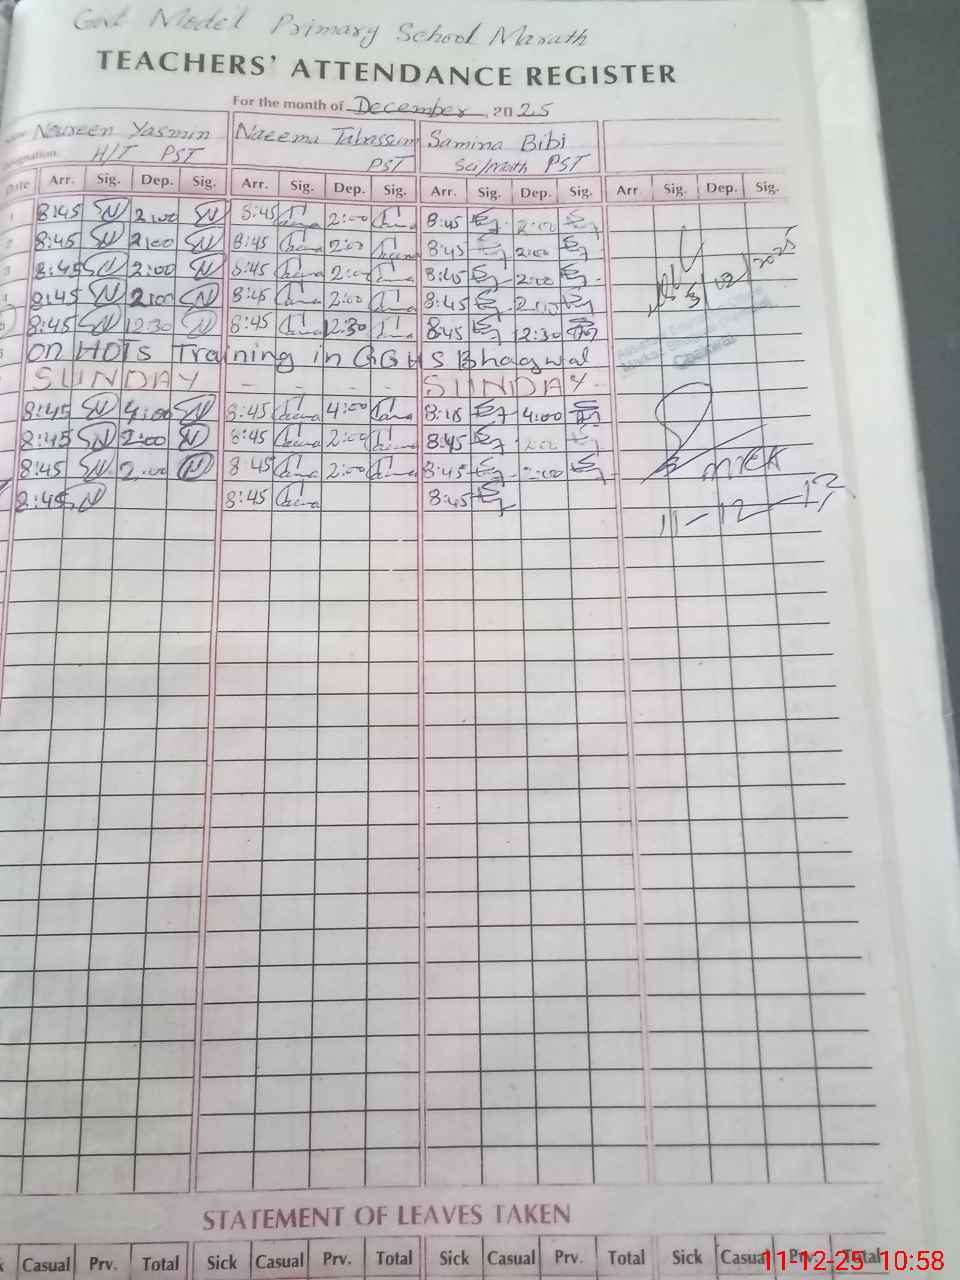 Govt Model Primary School Marath
TEACHERS' ATTENDANCE REGISTER
For the month of December, 2025
Noureen Yasmin Naeema Tabassum Samina Bibi
Designation H/T PST PST Sci/Math PST
Date Arr. Sig. Dep. Sig. Arr. Sig. Dep. Sig. Arr. Sig. Dep. Sig. Arr. Sig. Dep. Sig.
1 8:45 2:00 8:45 2:00 8:45 2:00
2 8:45 2:00 8:45 2:00 8:45 2:00
3 8:45 2:00 8:45 2:00 8:45 2:00
4 8:45 2:00 8:45 2:00 8:45 2:00
8:45 12:30 8:45 12:30 8:45 12:30
On HOTs Training in GGHS Bhagwal
SUNDAY - - - - SUNDAY
8:45 4:00 8:45 4:00 8:15 4:00
8:45 2:00 8:45 2:00 8:45 2:00
8:45 2:00 8:45 2:00 8:45 2:00
8:45 8:45 8:45
11-12-
STATEMENT OF LEAVES TAKEN
k Casual Prv. Total Sick Casual Prv. Total Sick Casual Prv. Total Sick Casual Prv. Total
11-12-25 10:58